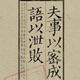 夫事以密成
語以泄敗